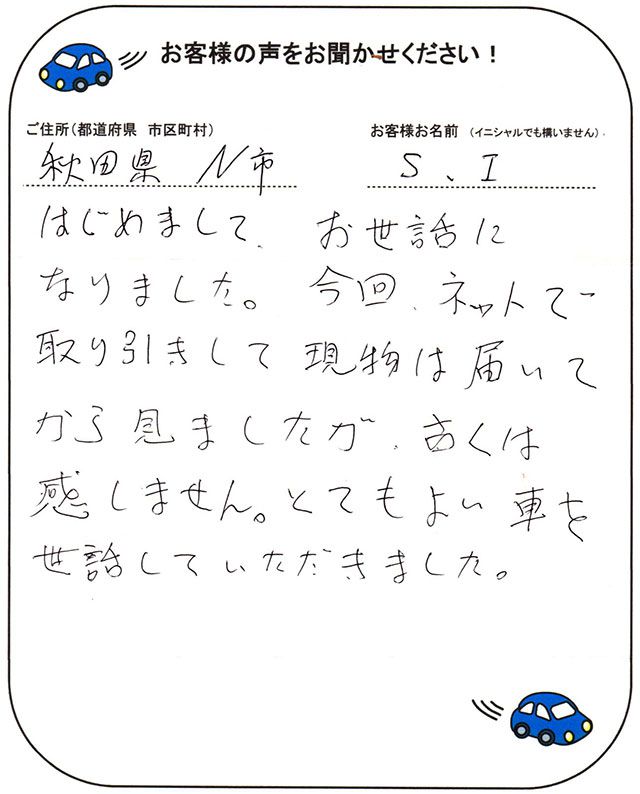 お客様の声をお聞かせください！
ご住所（都道府県　市区町村）　お客様お名前　（イニシャルでも構いません）
秋田県　N市　S、I
はじめまして、お世話に
なりました。今回、ネットで
取り引きして現物は届いて
から見ましたが、古くは
感しません。とてもよい車を
世話していただきました。